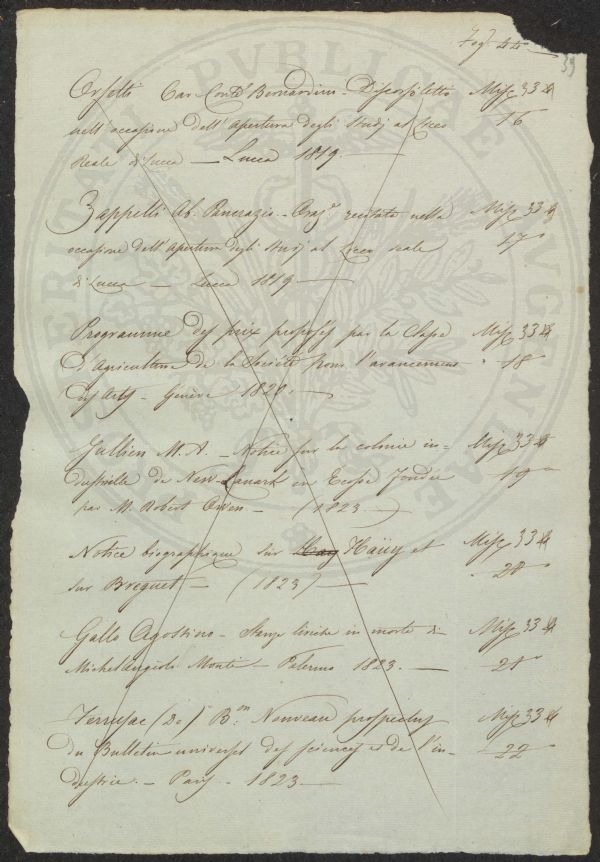 39
Orsetti Cav. Cont.e Bernardino - Discorso letto Misc 33
nell'occasione dell'apertura degli studj al Liceo 16
Reale di Lucca — Lucca 1819. —
Zappelli Ab. Pancrazio - Oraz.e recitata nella Misc 33
occasione dell'apertura degli studj al Liceo reale 17
di Lucca — Lucca 1819 —
Programme des prix proposés par la Classe Misc 33
d'Agriculture de la Société pour l'avancement 18
des Arts - Genève 1820. —
Jullien M. A. - Notice sur la colonie in- Misc 33
dustrielle de New-Lanark en Ecosse fondée 19
par M. Robert Owen - (1823)
Notice biographique sur Haüy et Misc 33
sur Breguet - (1823) — 20
Gallo Agostino - Stanze liriche in morte di Misc 33
Michelangiolo Monti - Palermo 1823. — 21
Ferussac (De) B.on Nouveau prospectus Misc 33
du Bulletin universel des sciences et de l'in- 22
dustrie. - Paris - 1823 —